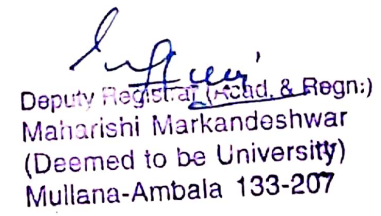 Deputy Registrar (Acad. & Regn:)
Maharishi Markandeshwar
(Deemed to be University)
Mullana-Ambala 133-207